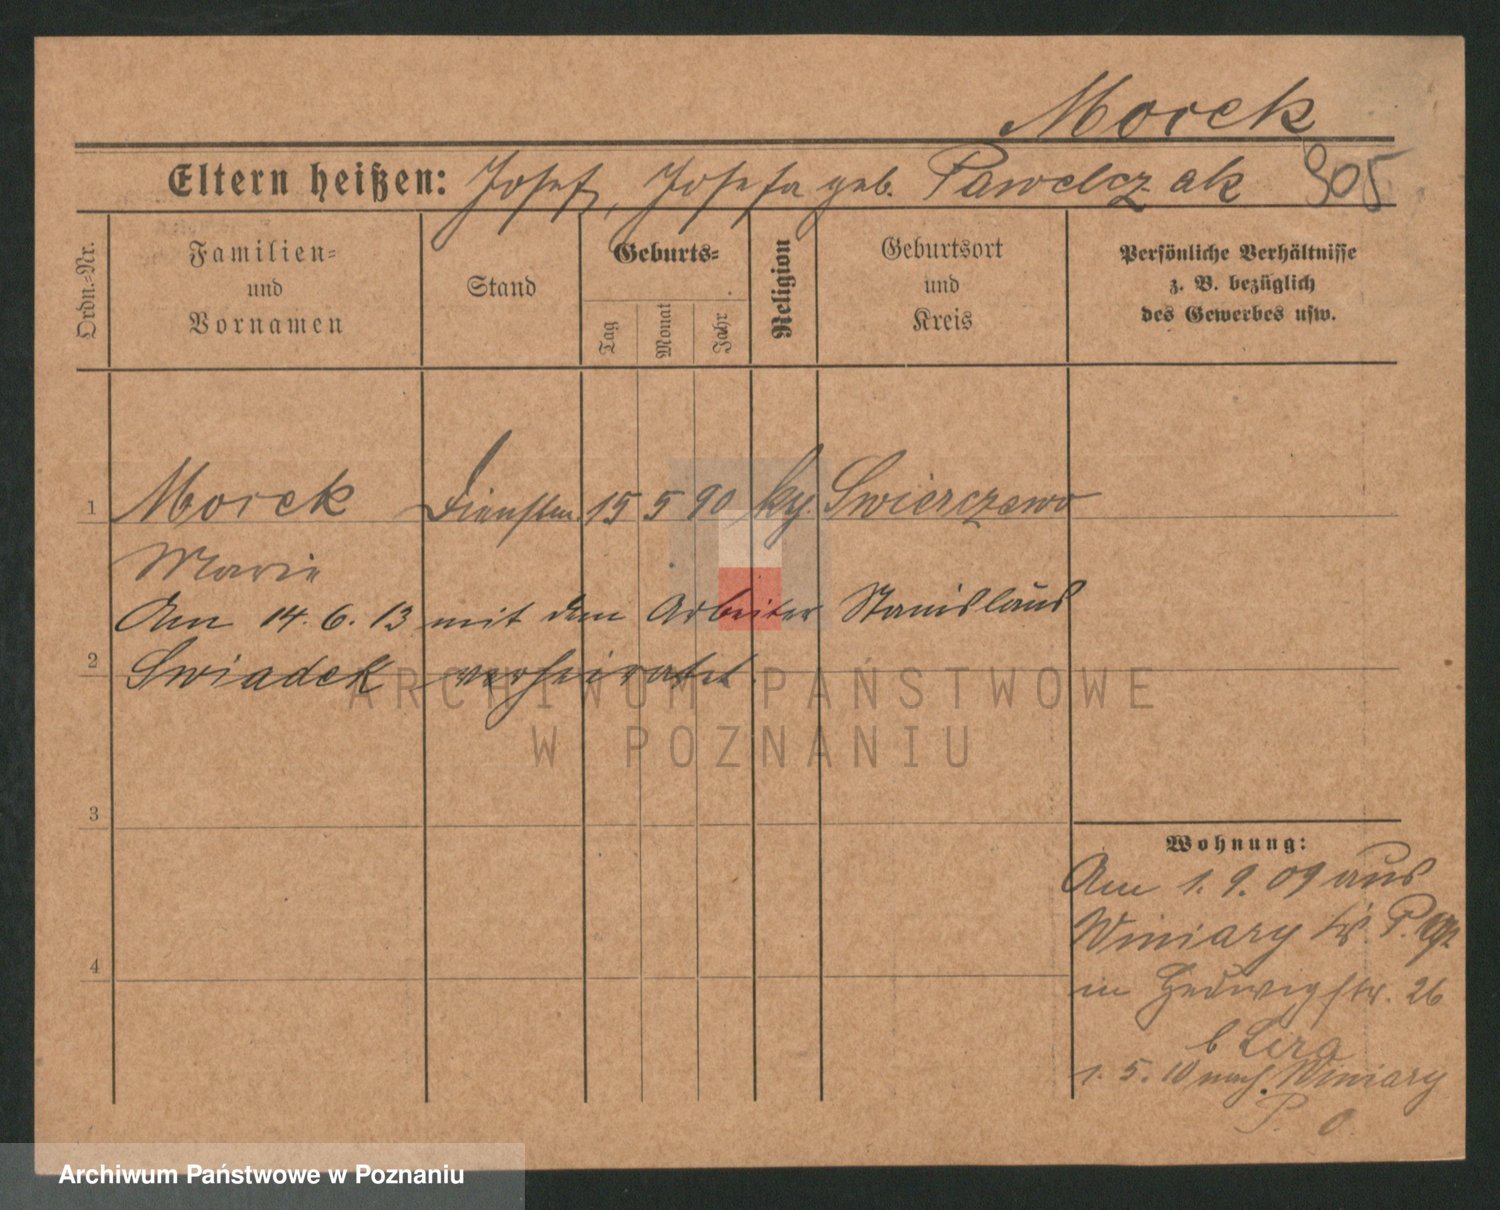 Morek
Eltern heißen: Josef, Josefa geb. Pawelczak 305
Ordn.-Nr.
Familien-
und
Vornamen
Stand
Geburts-
Tag
Monat
Jahr
Religion
Geburtsort
und
Kreis
Persönliche Verhältnisse
z. B. bezüglich
des Gewerbes usw.
1 Morek Dienstm. 15 5 90 Swierczewo
Marie
Am 14. 6. 13 mit dem Arbeiter Stanislaus
2
Swiadek verheiratet.
ARCHIWUM PAŃSTWOWE
W POZNANIU
3
4
Wohnung:
Am 1. 9. 09 aus
Winiary P.
in Hedwigstr. 26
b Lera
1. 5. 10 nach Winiary
P. O.
Archiwum Państwowe w Poznaniu